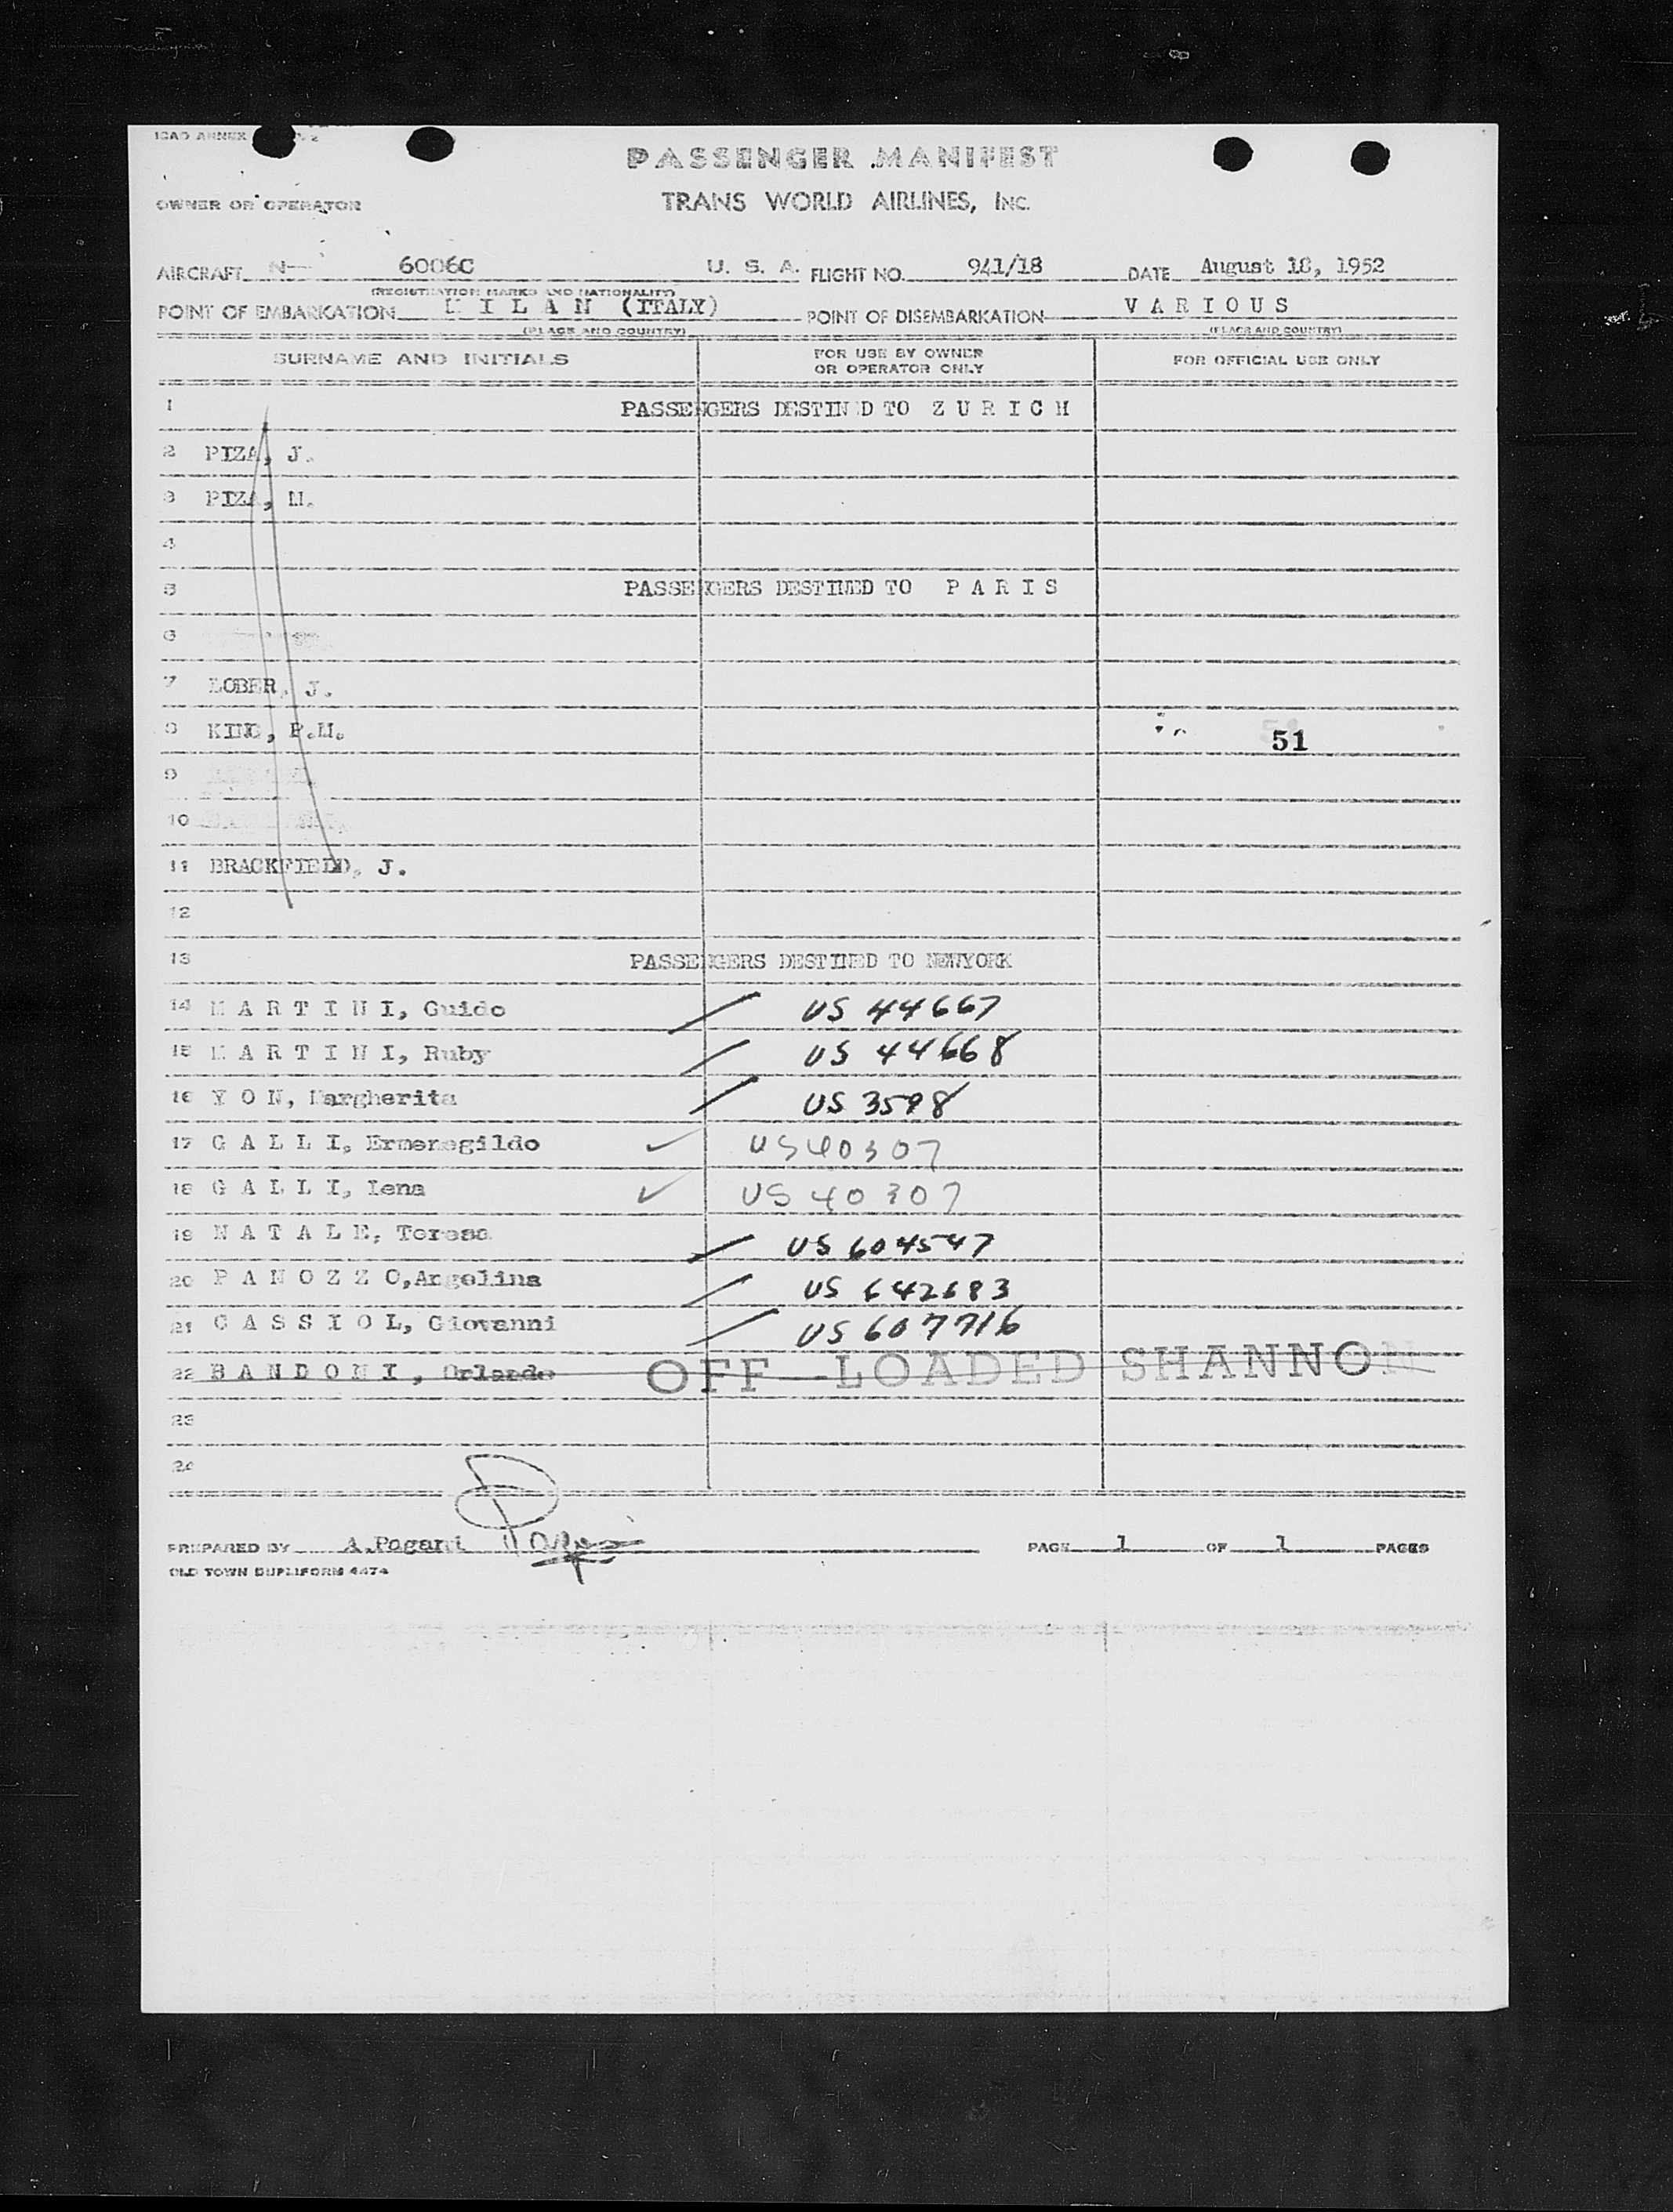 ICAO ANNEX
PASSENGER MANIFEST
OWNER OR OPERATOR
TRANS WORLD AIRLINES, INC.
AIRCRAFT N 6006C U. S. A. FLIGHT NO. 941/18 DATE August 18, 1952
(REGISTRATION MARKS AND NATIONALITY)
POINT OF EMBARKATION M I L A N (ITALY) POINT OF DISEMBARKATION V A R I O U S
(PLACE AND COUNTRY) (PLACE AND COUNTRY)
SURNAME AND INITIALS FOR USE BY OWNER OR OPERATOR ONLY FOR OFFICIAL USE ONLY
1 PASSENGERS DESTINED TO Z U R I C H
2 PIZA, J.
3 PIZA, M.
4
5 PASSENGERS DESTINED TO P A R I S
6
7 LOBER, J.
8 KING, P.M. 51
9
10
11 BRACKFIELD, J.
12
13 PASSENGERS DESTINED TO NEWYORK
14 M A R T I N I, Guido US 44667
15 M A R T I N I, Ruby US 44668
16 Y O N, Margherita US 3598
17 G A L L I, Ermenegildo US40307
18 G A L L I, Lena US 40307
19 N A T A L E, Teresa US 604547
20 P A N O Z Z O,Angelina US 642683
21 C A S S I O L, Giovanni US 607716
22 B A N D O N I, Orlando OFF-LOADED SHANNON
23
24
PREPARED BY A.Pagani PAGE 1 OF 1 PAGES
OLD TOWN DUPLIFORM 4474